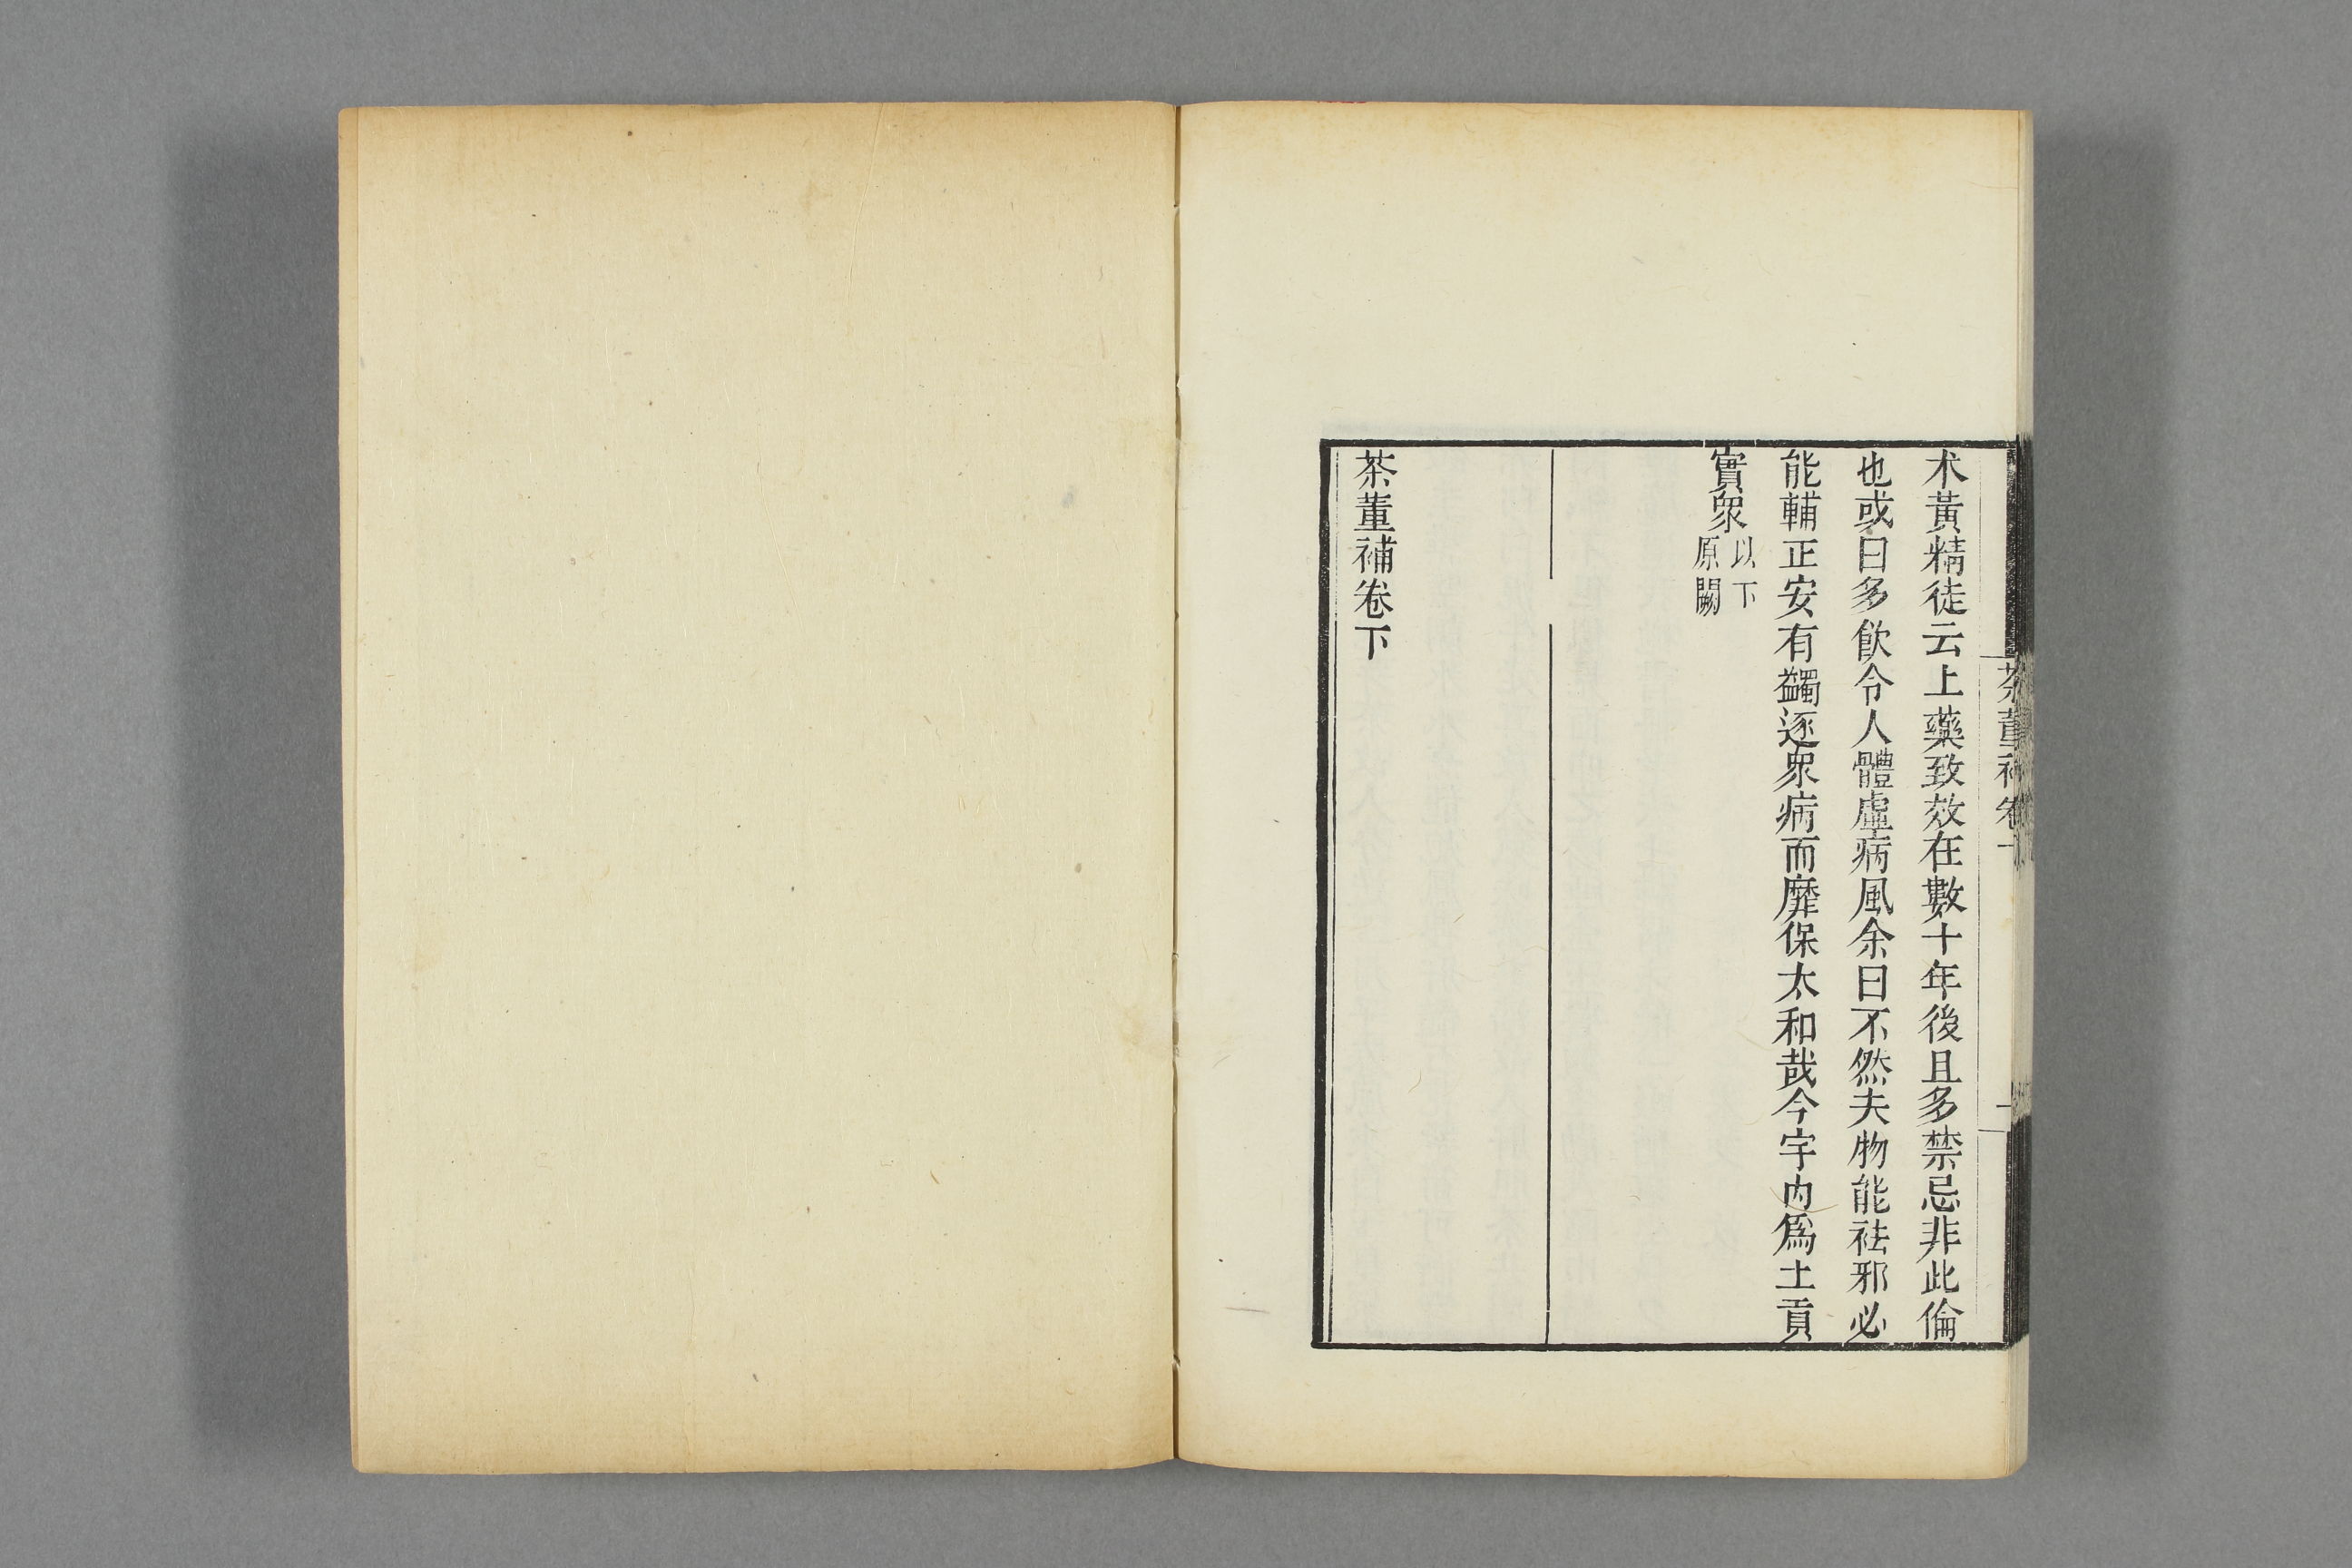 术黃精徒云上藥致效在數十年後且多禁忌非此倫
也或曰多飲令人體虛病風余曰不然夫物能祛邪必
能輔正安有蠲逐衆病而靡保太和哉今宇內爲土貢
實衆
以下
原闕
茶董補卷下
茶董補卷